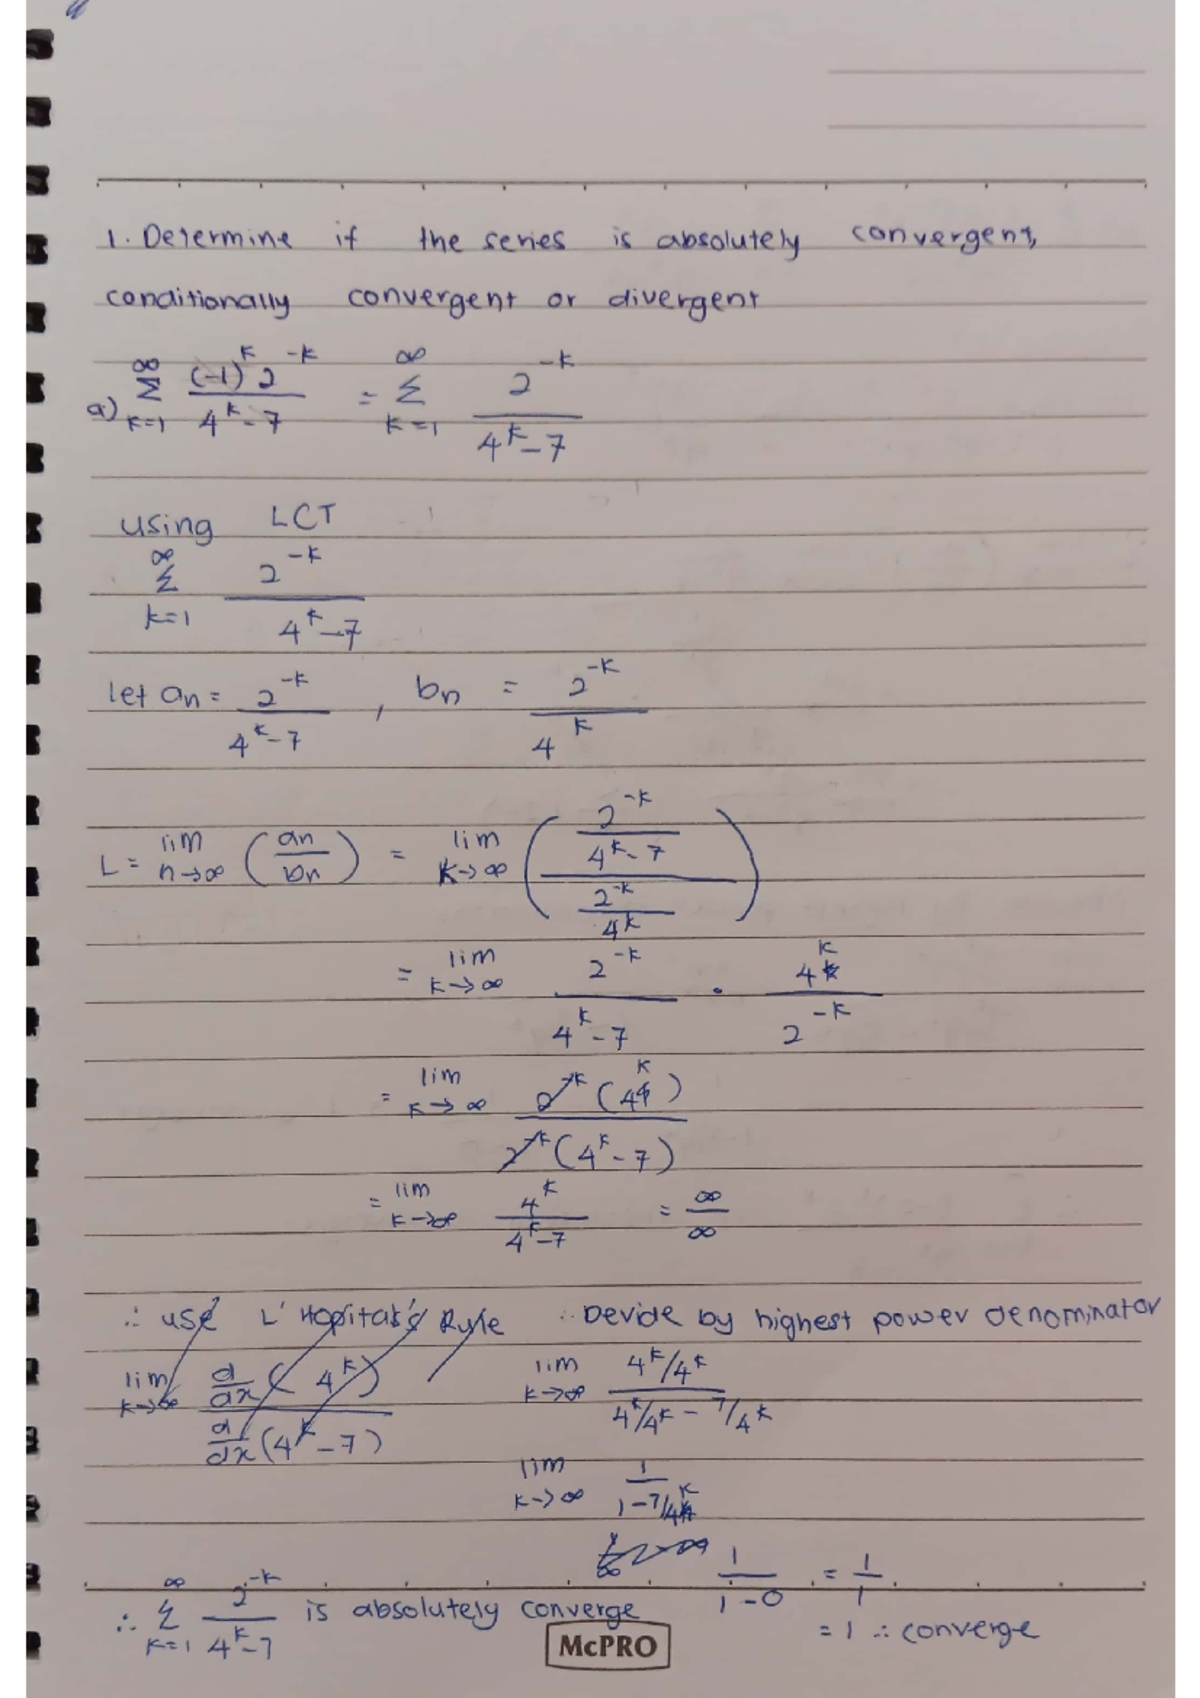 1. Determine if the series is absolutely convergent,
conditionally convergent or divergent
a) ∞ Σ k=1 (-1)^k 2^-k / 4^k - 7 = ∞ Σ k=1 2^-k / 4^k - 7
using LCT
∞ Σ k=1 2^-k / 4^k - 7
let an = 2^-k / 4^k - 7 , bn = 2^-k / 4^k
L = lim n→∞ (an / bn) = lim k→∞ ( 2^-k / 4^k - 7 / 2^-k / 4^k )
= lim k→∞ 2^-k / 4^k - 7 · 4^k / 2^-k
= lim k→∞ 2^-k (4^k) / 2^-k (4^k - 7)
= lim k→∞ 4^k / 4^k - 7 = ∞ / ∞
∴ use L'Hopital's Rule ∴ Devide by highest power denominator
lim k→∞ d/dx (4^k) / d/dx (4^k - 7) lim k→∞ 4^k/4^k / 4^k/4^k - 7/4^k
lim k→∞ 1 / 1 - 7/4^k
1 / 1 - 0 = 1 / 1
∴ ∞ Σ k=1 2^-k / 4^k - 7 is absolutely converge
= 1 ∴ converge
McPRO